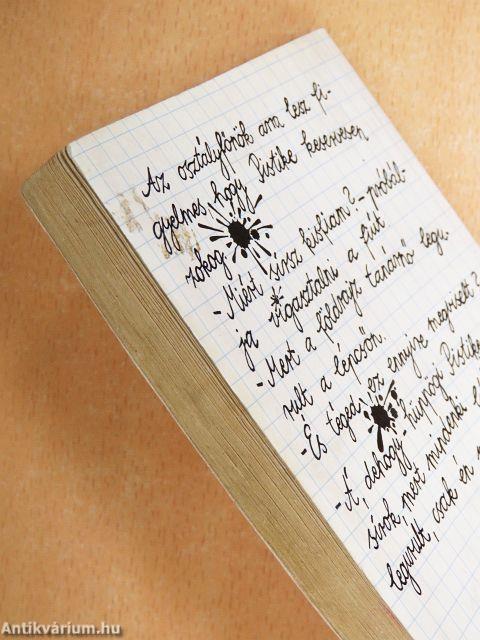 Az osztályfőnök arra lesz fi-
gyelmes, hogy Pistike keservesen
zokog.
-Miért sírsz kisfiam? - próbál-
ja vigasztalni a fiút.
-Mert a földrajz tanárnő legu-
rult a lépcsőn.
-És téged ez ennyire megviselt?
-Á, dehogy - hüppögi Pistike
sírok, mert mindenki
legurult, csak én
Antikvárium.hu